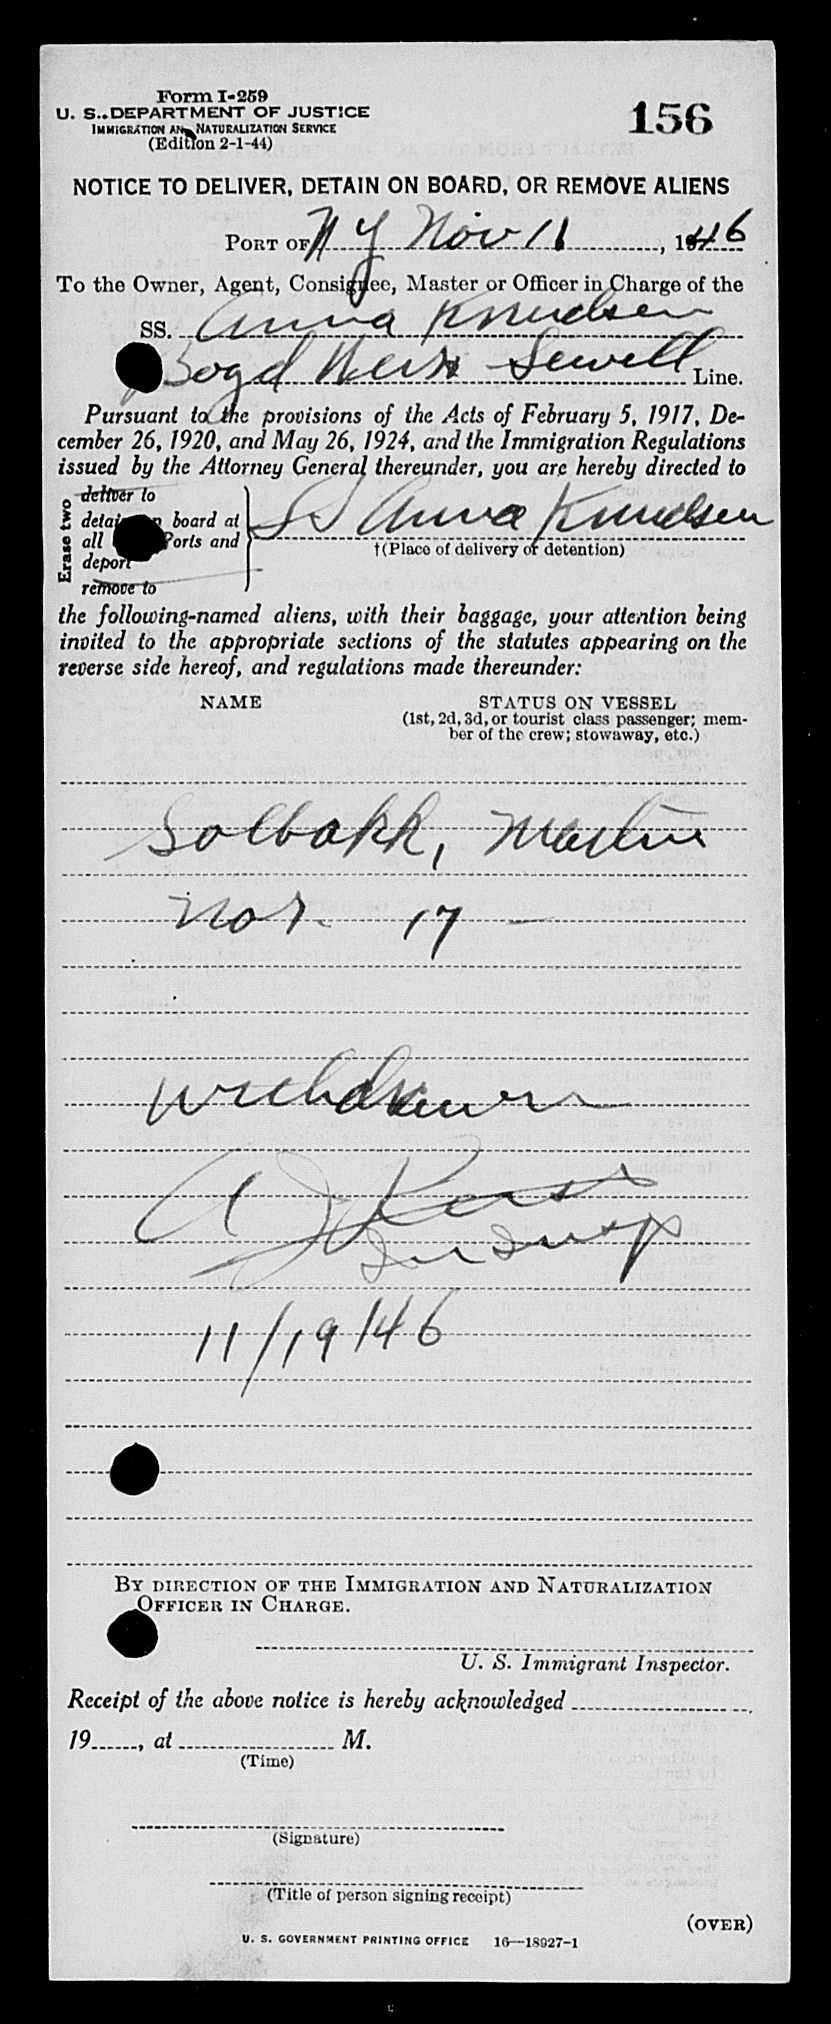 Form I-259
U. S. DEPARTMENT OF JUSTICE
IMMIGRATION AND NATURALIZATION SERVICE
(Edition 2-1-44)
156
NOTICE TO DELIVER, DETAIN ON BOARD, OR REMOVE ALIENS
PORT OF N Y Nov 18, 1946
To the Owner, Agent, Consignee, Master or Officer in Charge of the
SS. Anna Knudsen
Boyd Weir Sewell Line.
Pursuant to the provisions of the Acts of February 5, 1917, De-
cember 26, 1920, and May 26, 1924, and the Immigration Regulations
issued by the Attorney General thereunder, you are hereby directed to
Erase two
deliver to
detain on board at
all Ports and
deport
remove to
SS Anna Knudsen
†(Place of delivery or detention)
the following-named aliens, with their baggage, your attention being
invited to the appropriate sections of the statutes appearing on the
reverse side hereof, and regulations made thereunder:
NAME STATUS ON VESSEL
(1st, 2d, 3d, or tourist class passenger; mem-
ber of the crew; stowaway, etc.)
Solbakk, Martin
Nor. 17 –
withdrawn
A J
11/19/46
BY DIRECTION OF THE IMMIGRATION AND NATURALIZATION
OFFICER IN CHARGE.
U. S. Immigrant Inspector.
Receipt of the above notice is hereby acknowledged
19 , at M.
(Time)
(Signature)
(Title of person signing receipt)
(OVER)
U. S. GOVERNMENT PRINTING OFFICE 16—18927-1